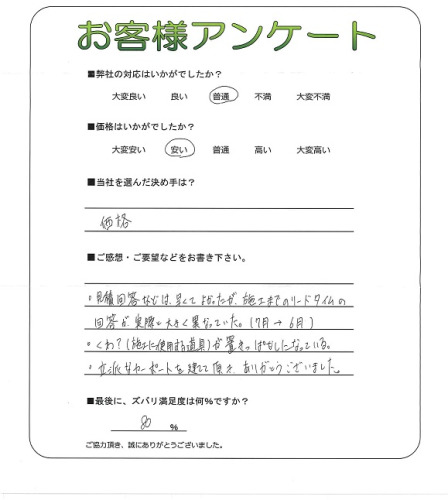 お客様アンケート
■弊社の対応はいかがでしたか？
大変良い 良い 普通 不満 大変不満
■価格はいかがでしたか？
大変安い 安い 普通 高い 大変高い
■当社を選んだ決め手は？
価格
■ご感想・ご要望などをお書き下さい。
・見積回答などは、早くてよかったが、施工までのリードタイムの
回答が実際と大きく異なっていた。(7月→6月)
・くわ？(施工に使用する道具)が置きっぱなしになっている。
・立派なカーポートを建てて頂き、ありがとうございました。
■最後に、ズバリ満足度は何%ですか？
80 %
ご協力頂き、誠にありがとうございました。